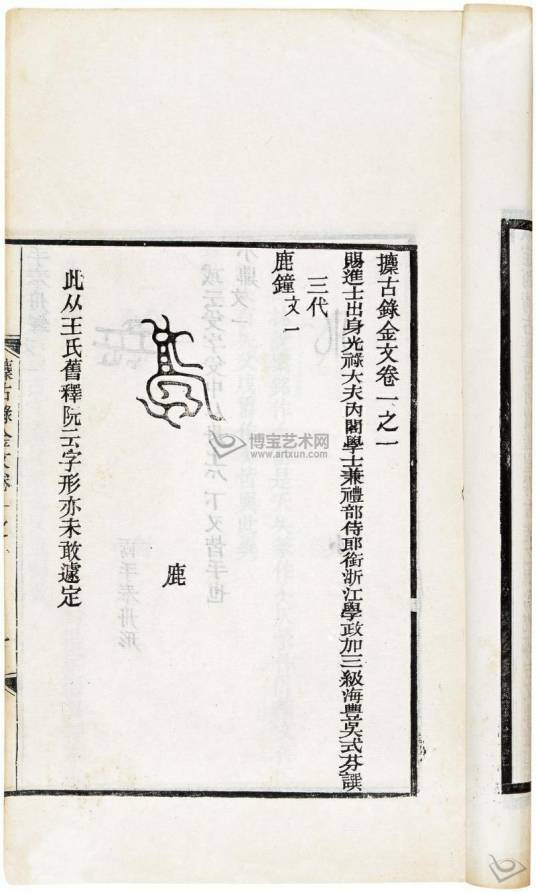 攈古錄金文卷一之一
賜進士出身光祿大夫內閣學士兼禮部侍郎銜浙江學政加三級海豐吳式芬譔
三代
鹿鐘文一
鹿
此从王氏舊釋阮云字形亦未敢遽定
攈古錄金文卷一之一
博宝艺术网
www.artxun.com